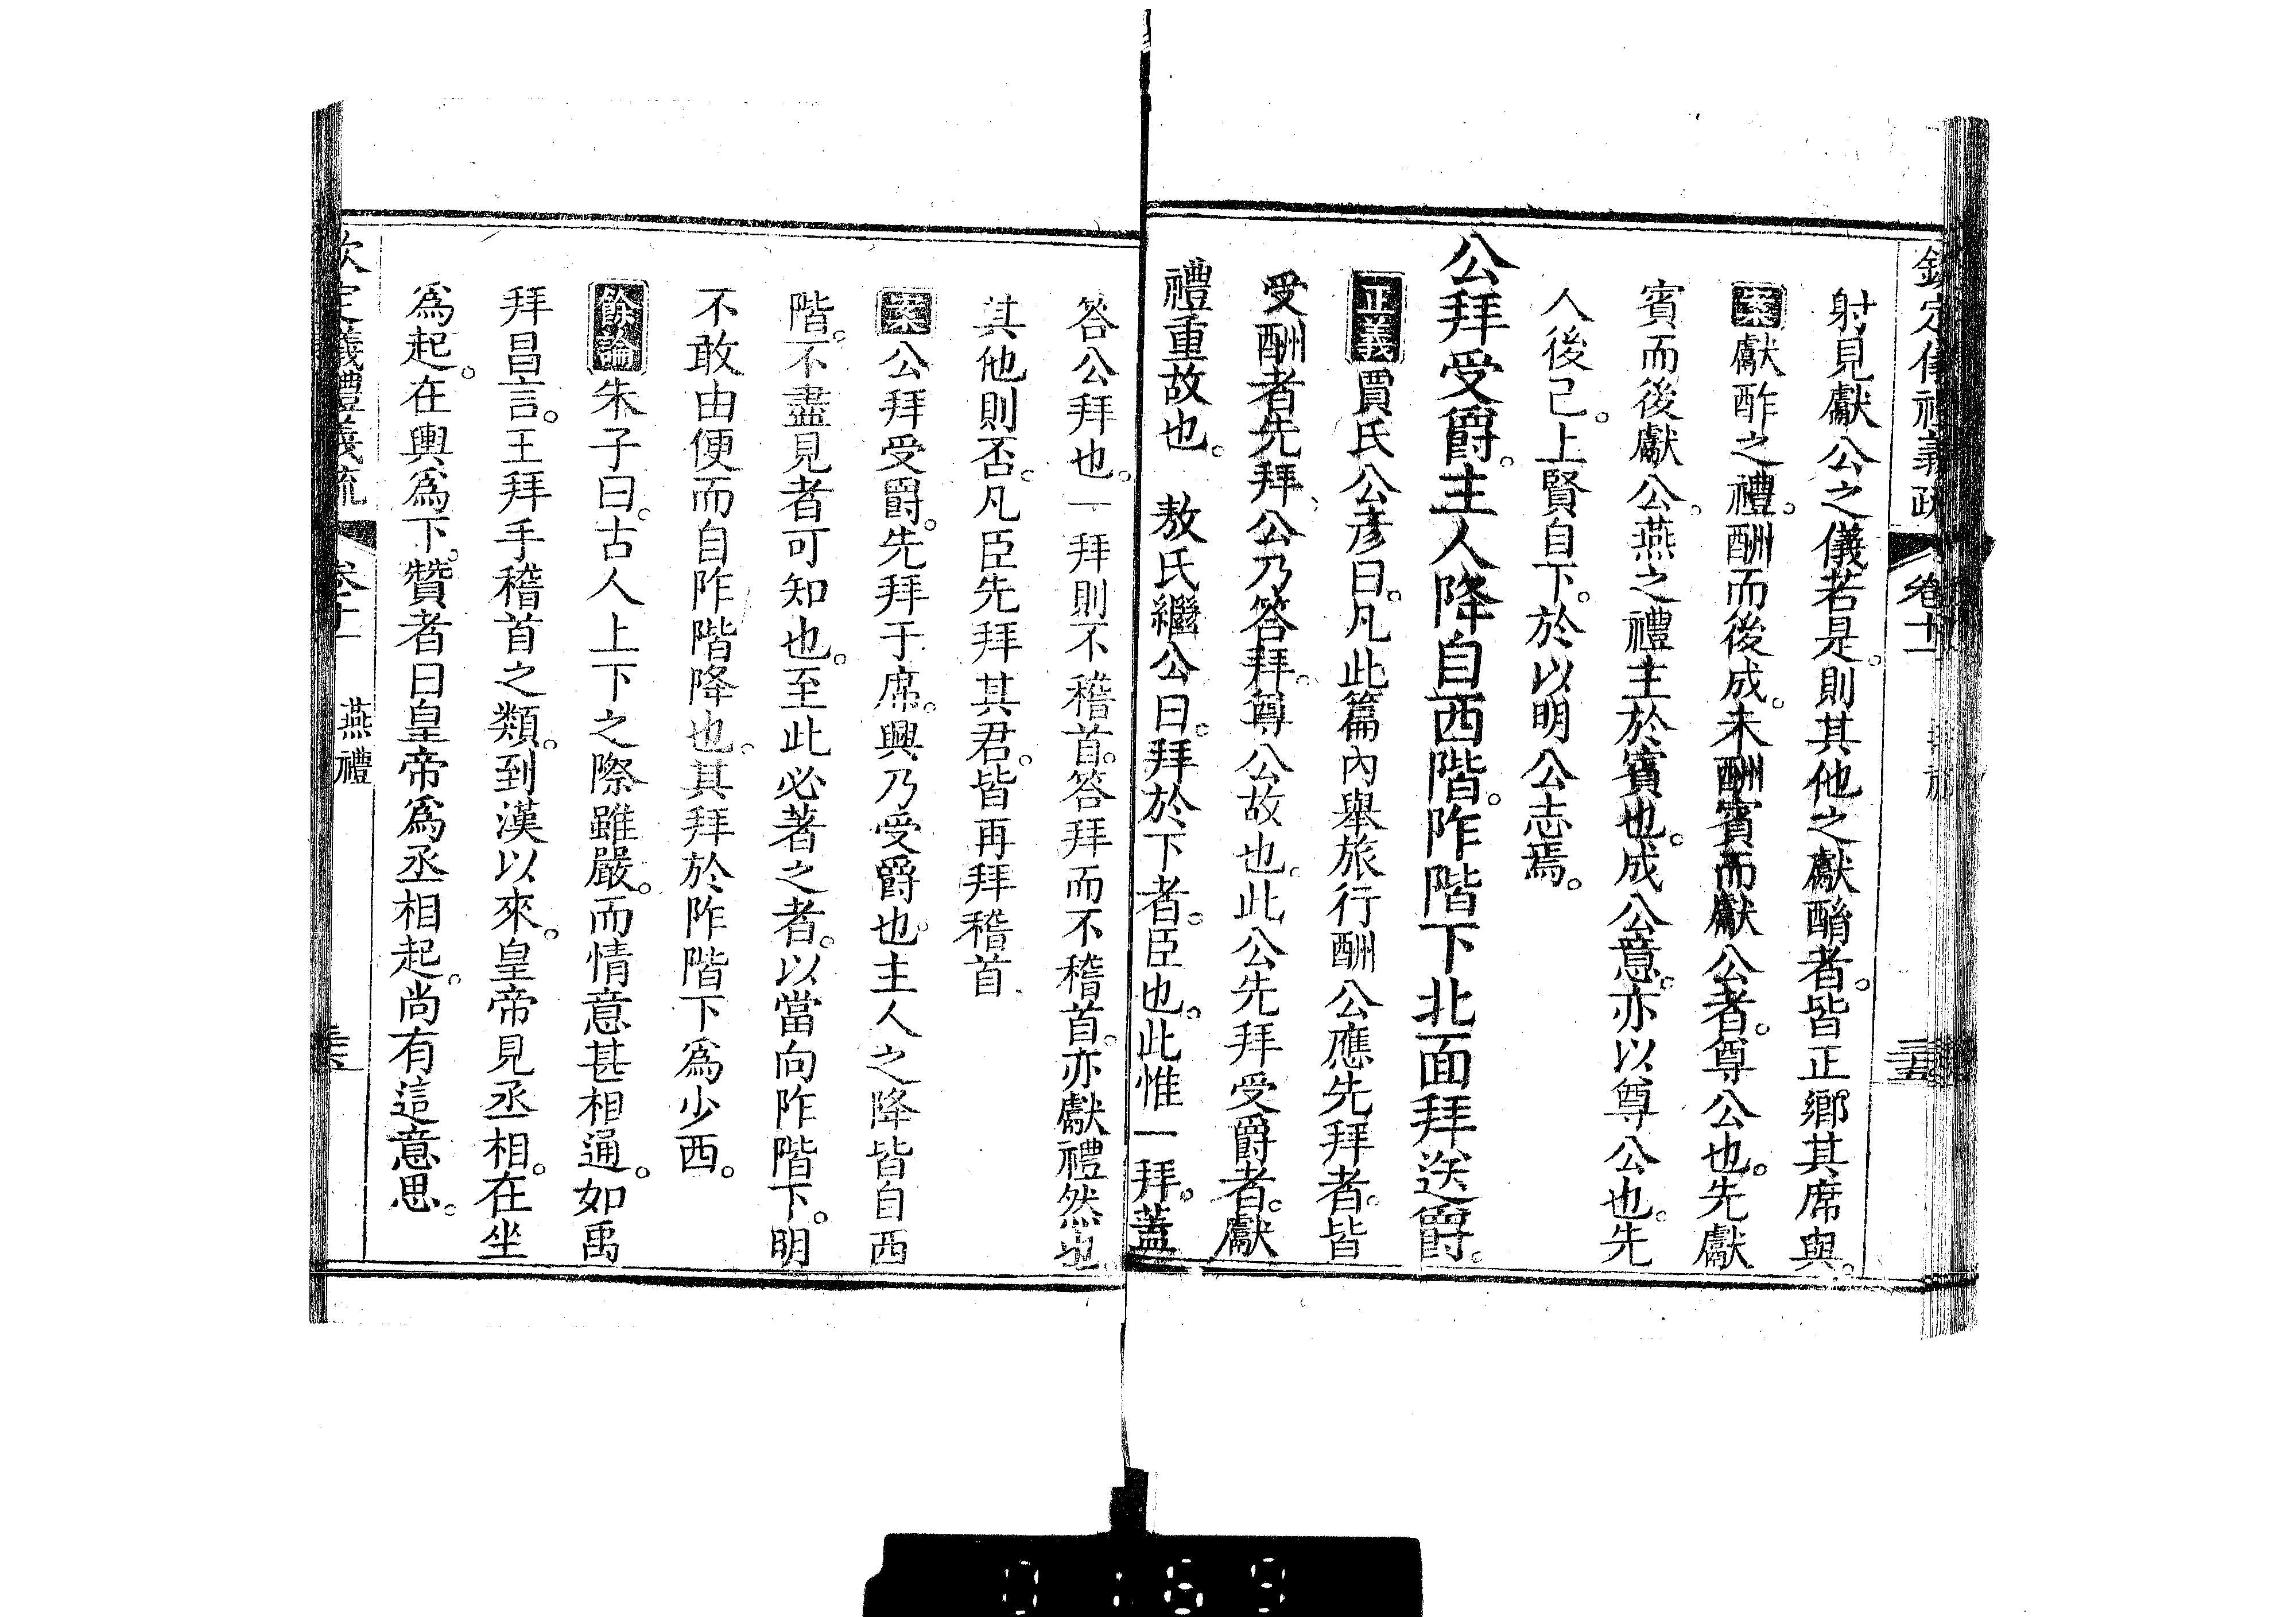 欽定儀禮義疏 卷十一
射見獻公之儀若是。則其他之獻酳者。皆正鄉其席與。
案獻酢之禮。酬而後成。未酬賓而獻公者。尊公也。先獻
賓而後獻公。燕之禮主於賓也。成公意。亦以尊公也。先
人後己。上賢自下。於以明公志焉。
公拜受爵。主人降自西階。阼階下北面拜送爵。
正義賈氏公彥曰。凡此篇內舉旅行酬公應先拜者。皆
受酬者先拜。公乃答拜。尊公故也。此公先拜受爵者。獻
禮重故也。 敖氏繼公曰。拜於下者。臣也。此惟一拜。蓋
答公拜也。一拜則不稽首。答拜而不稽首。亦獻禮然也。
其他則否。凡臣先拜其君。皆再拜稽首。
案公拜受爵。先拜于席。興乃受爵也。主人之降皆自西
階。不盡見者可知也。至此必著之者。以當向阼階下。明
不敢由便而自阼階降也。其拜於阼階下為少西。
餘論朱子曰。古人上下之際雖嚴。而情意甚相通。如禹
拜昌言。王拜手稽首之類。到漢以來。皇帝見丞相。在坐
為起。在輿為下。贊者曰皇帝為丞相起。尚有這意思。
欽定儀禮義疏 卷十一 燕禮